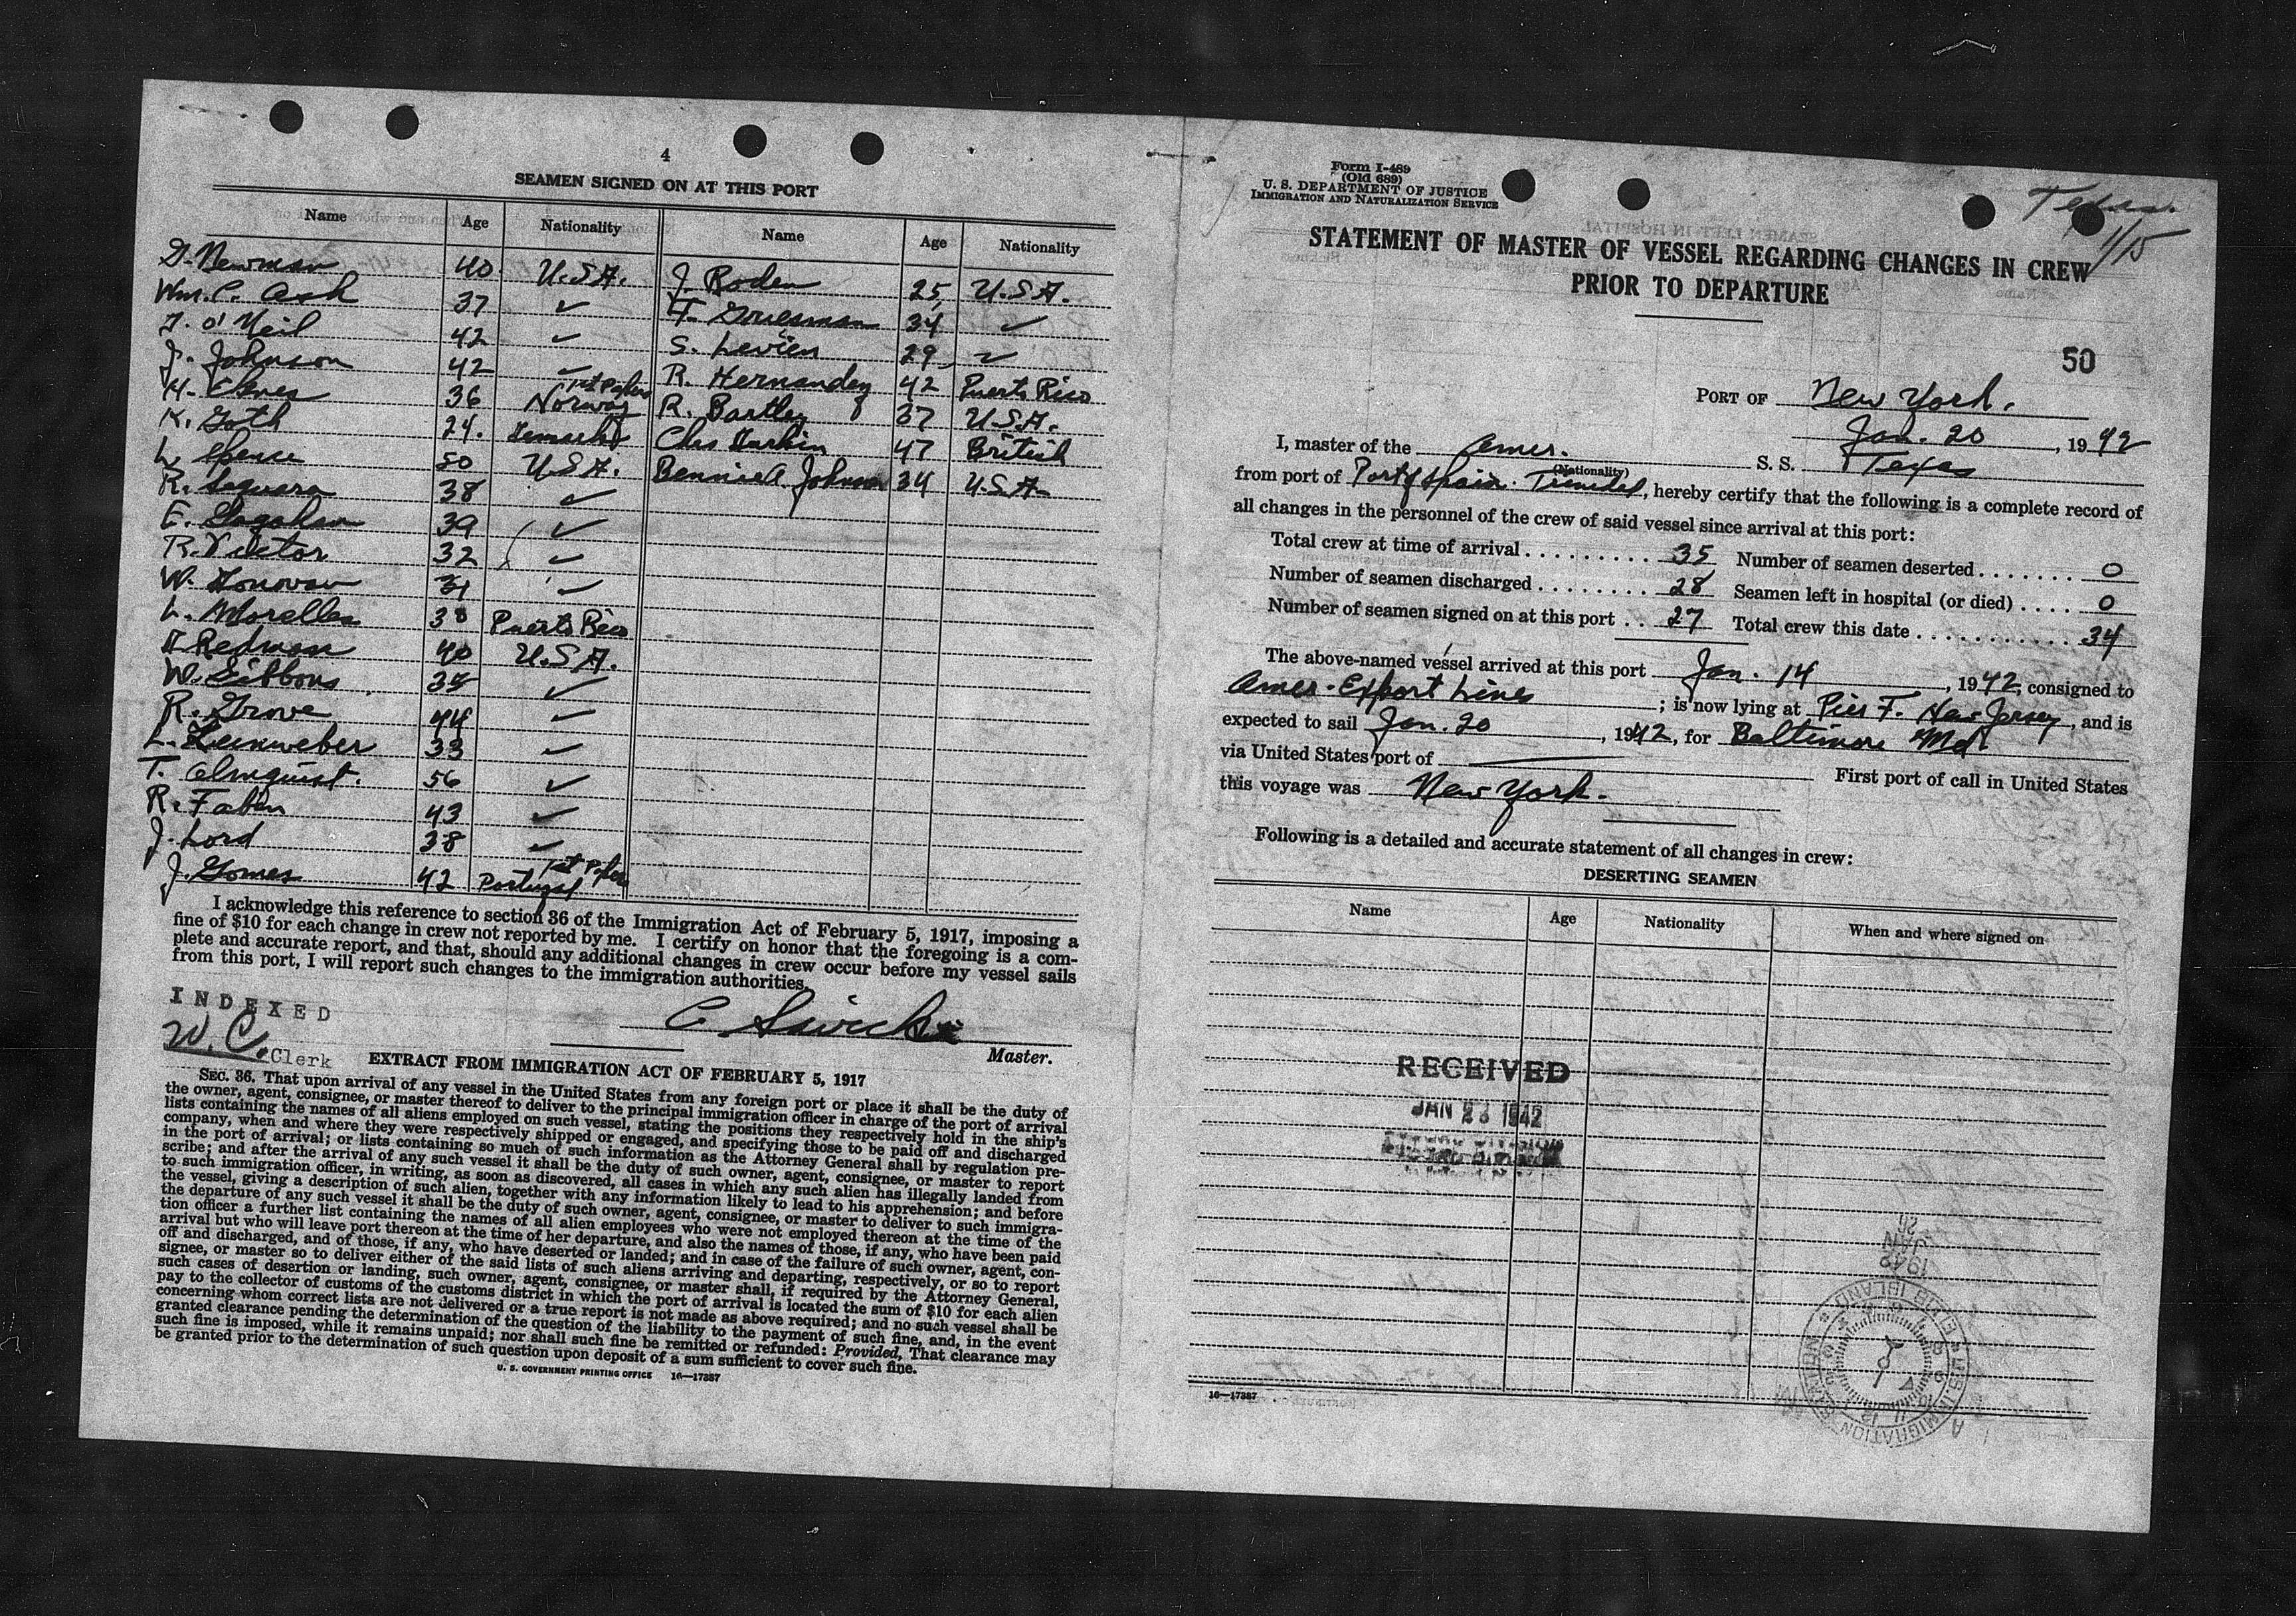 4
SEAMEN SIGNED ON AT THIS PORT
Name Age Nationality Name Age Nationality
Newman 40 U.S.A. J. Roden 25 U.S.A.
Wm. C. Ash 37 ✓ F. 34 ✓
O'Neil 42 ✓ S. Levien 29 ✓
J. Johnson 42 ✓ R. Hernandez 42 Puerto Rico
H. 36 1st Papers Norway R. Bartley 37 U.S.A.
K. Goth 24. Denmark Chas Durkin 47 British
L. Spence 50 U.S.A. Bennie A. Johnson 34 U.S.A.
R. 38 ✓
E. 39 ✓
R. Victor 32 ✓
W. Donovan 31 ✓
L. Morelles 38 Puerto Rico
Redman 40 U.S.A.
W. Gibbons 35 ✓
R. Grove 44 ✓
L. Leinweber 33 ✓
T. Almquist. 56 ✓
R. Faben 43 ✓
J. Lord 38 ✓
J. Gomes 42 Portugal 1st Papers
I acknowledge this reference to section 36 of the Immigration Act of February 5, 1917, imposing a
fine of $10 for each change in crew not reported by me. I certify on honor that the foregoing is a com-
plete and accurate report, and that, should any additional changes in crew occur before my vessel sails
from this port, I will report such changes to the immigration authorities.
INDEXED
W. C. Clerk
C
Master.
EXTRACT FROM IMMIGRATION ACT OF FEBRUARY 5, 1917
SEC. 36. That upon arrival of any vessel in the United States from any foreign port or place it shall be the duty of
the owner, agent, consignee, or master thereof to deliver to the principal immigration officer in charge of the port of arrival
lists containing the names of all aliens employed on such vessel, stating the positions they respectively hold in the ship's
company, when and where they were respectively shipped or engaged, and specifying those to be paid off and discharged
in the port of arrival; or lists containing so much of such information as the Attorney General shall by regulation pre-
scribe; and after the arrival of any such vessel it shall be the duty of such owner, agent, consignee, or master to report
to such immigration officer, in writing, as soon as discovered, all cases in which any such alien has illegally landed from
the vessel, giving a description of such alien, together with any information likely to lead to his apprehension; and before
the departure of any such vessel it shall be the duty of such owner, agent, consignee, or master to deliver to such immigra-
tion officer a further list containing the names of all alien employees who were not employed thereon at the time of the
arrival but who will leave port thereon at the time of her departure, and also the names of those, if any, who have been paid
off and discharged, and of those, if any, who have deserted or landed; and in case of the failure of such owner, agent, con-
signee, or master so to deliver either of the said lists of such aliens arriving and departing, respectively, or so to report
such cases of desertion or landing, such owner, agent, consignee, or master shall, if required by the Attorney General,
pay to the collector of customs of the customs district in which the port of arrival is located the sum of $10 for each alien
concerning whom correct lists are not delivered or a true report is not made as above required; and no such vessel shall be
granted clearance pending the determination of the question of the liability to the payment of such fine, and, in the event
such fine is imposed, while it remains unpaid; nor shall such fine be remitted or refunded: Provided, That clearance may
be granted prior to the determination of such question upon deposit of a sum sufficient to cover such fine.
U. S. GOVERNMENT PRINTING OFFICE 16—17387
Form I-489
(Old 689)
U. S. DEPARTMENT OF JUSTICE
IMMIGRATION AND NATURALIZATION SERVICE
Texas.
1/15
STATEMENT OF MASTER OF VESSEL REGARDING CHANGES IN CREW
PRIOR TO DEPARTURE
50
PORT OF New York.
Jan. 20, 1942
I, master of the Amer. S. S. Texas
(Nationality)
from port of Port of Spain. Trinidad, hereby certify that the following is a complete record of
all changes in the personnel of the crew of said vessel since arrival at this port:
Total crew at time of arrival . . . . . . . . . 35 Number of seamen deserted . . . . . . . 0
Number of seamen discharged . . . . . . . . 28 Seamen left in hospital (or died) . . . . 0
Number of seamen signed on at this port . . 27 Total crew this date . . . . . . . . . . . . 34
The above-named vessel arrived at this port Jan. 14, 1942, consigned to
Amer. Export Lines; is now lying at Pier F. New Jersey, and is
expected to sail Jan. 20, 1942, for Baltimore Md.
via United States port of — First port of call in United States
this voyage was New York.
Following is a detailed and accurate statement of all changes in crew:
DESERTING SEAMEN
Name Age Nationality When and where signed on
RECEIVED
JAN 23 1942
1942
JAN
20
16—17387